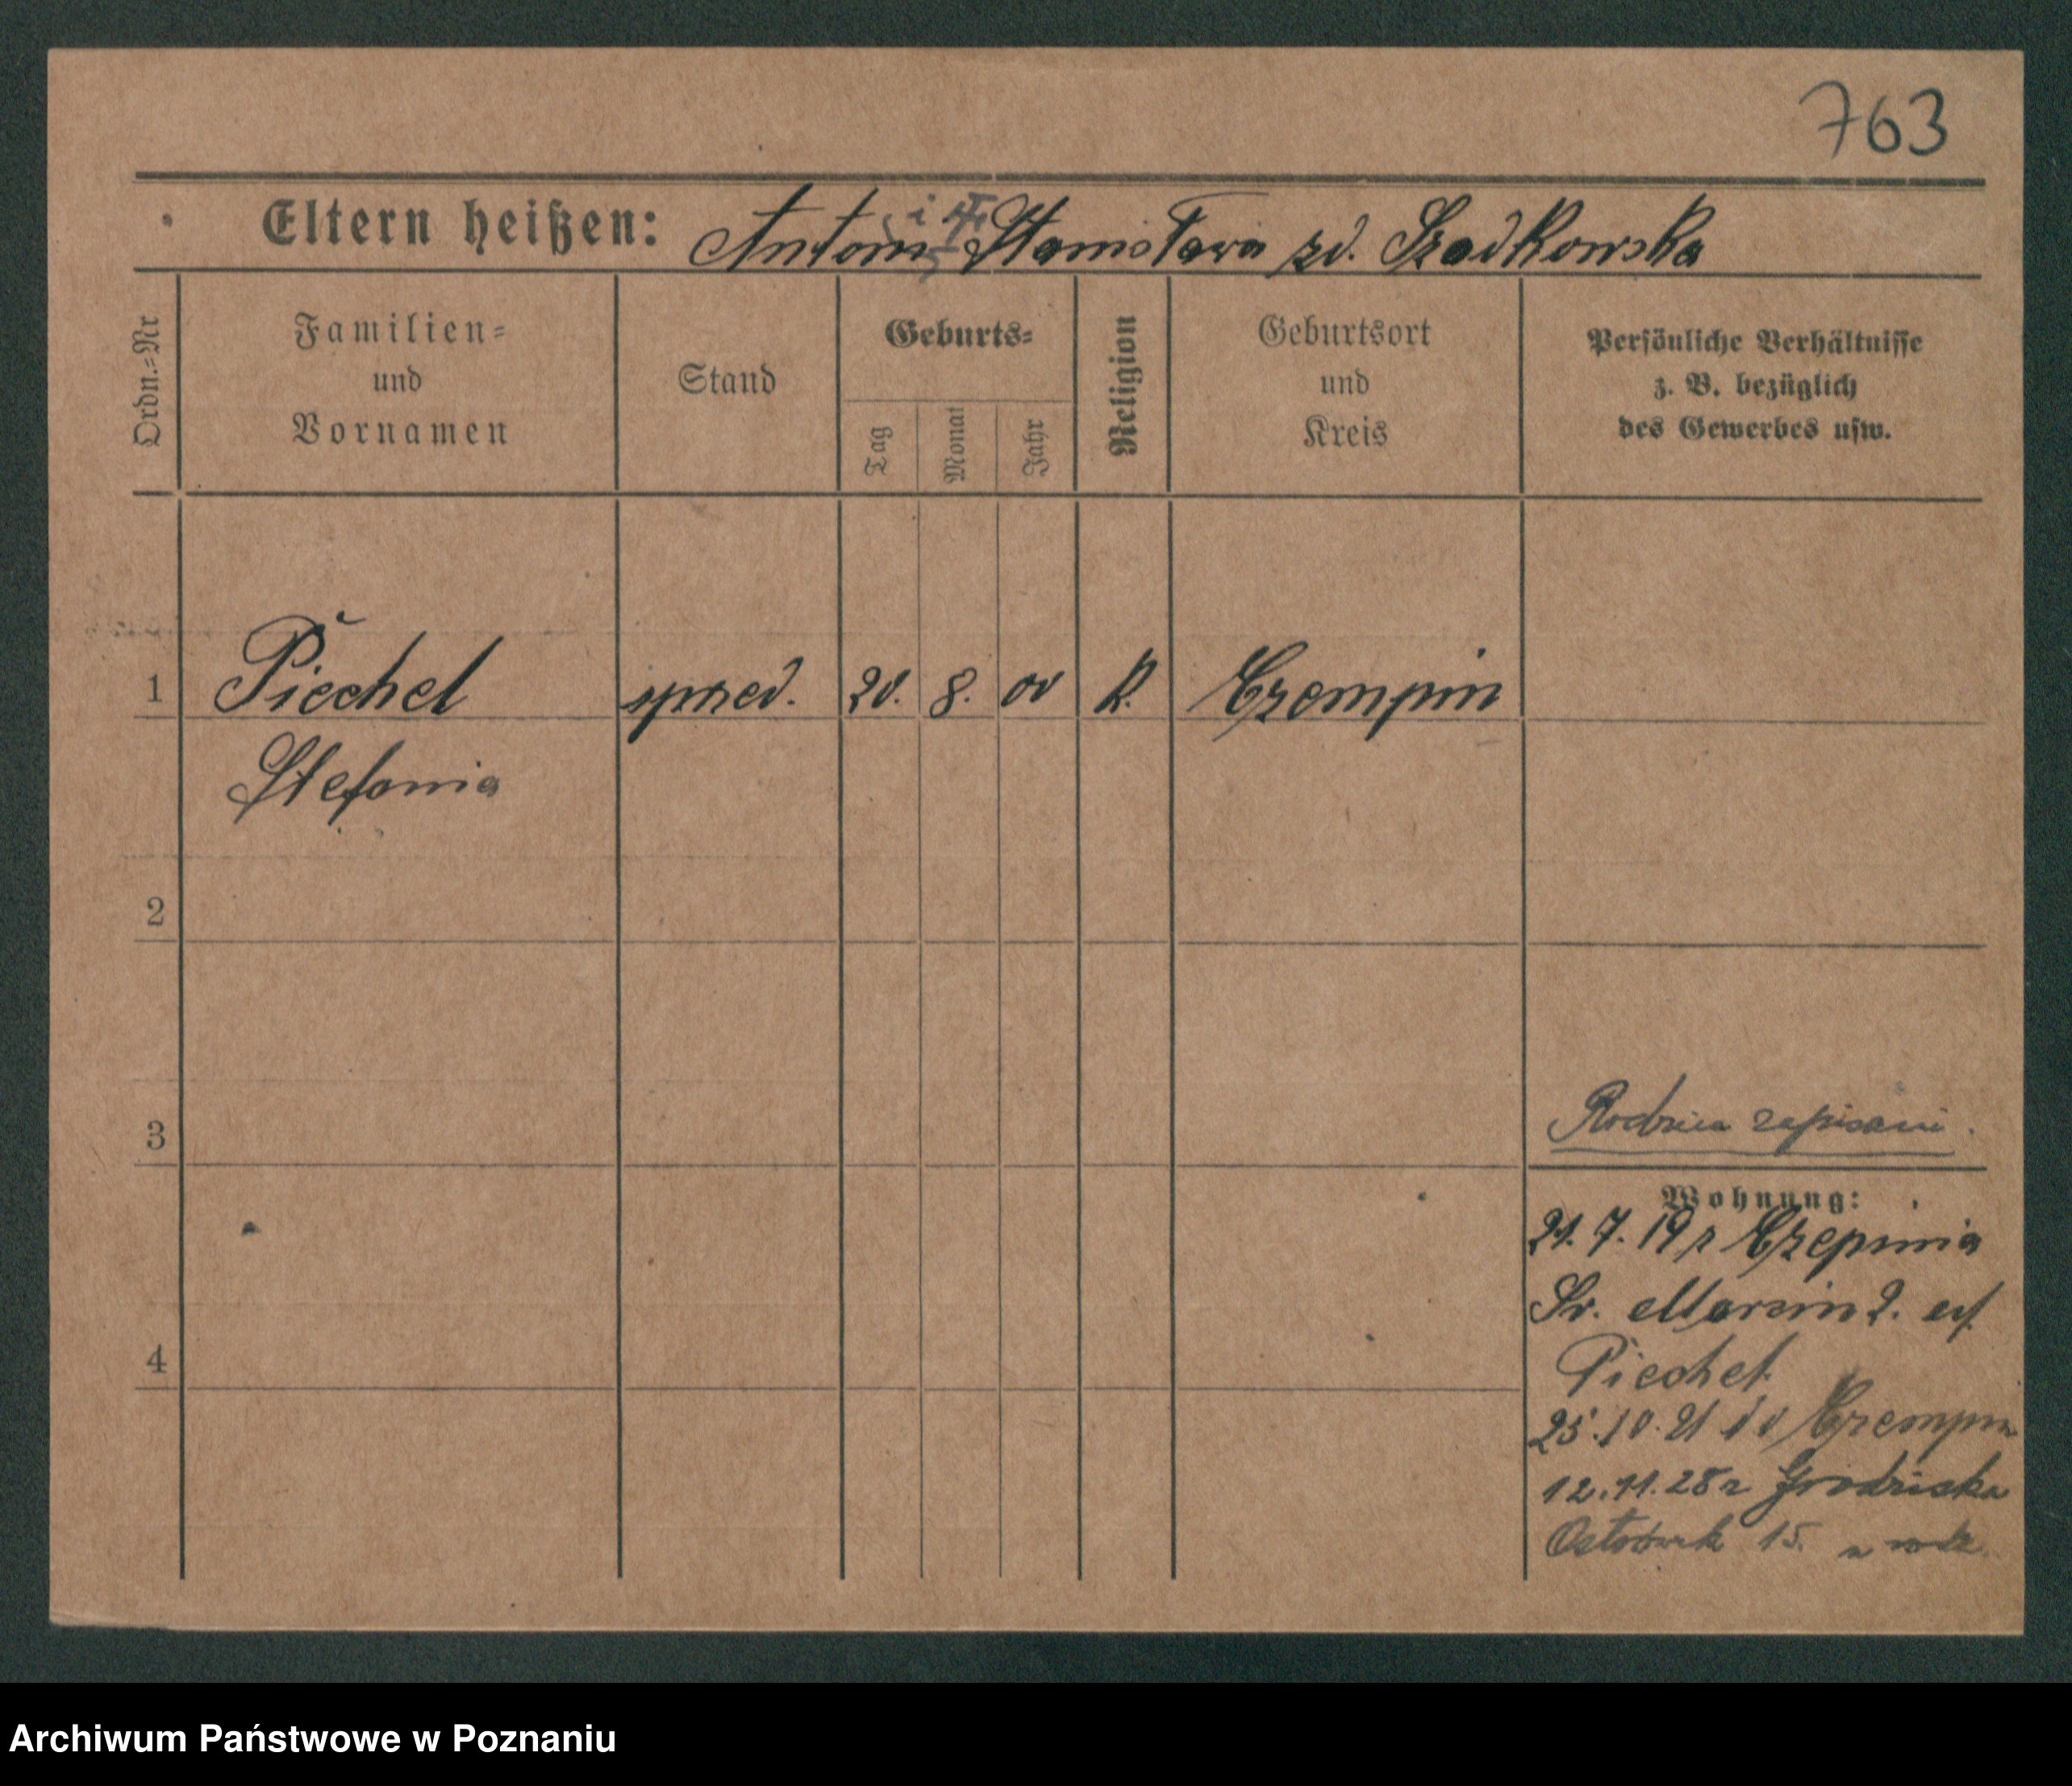 763
Eltern heißen: Antoni i Stanisława zd. Szadkowska
Ordn.=Nr
Familien=
und
Vornamen
Stand
Geburts=
Tag
Monat
Jahr
Religion
Geburtsort
und
Kreis
Persönliche Verhältnisse
z. B. bezüglich
des Gewerbes usw.
1 Piechel sprzed. 20. 8. 00 k. Czempin
Stefania
2
3
zapisani.
4
Wohnung:
21. 7. 19 r Czepinia
Św. Marcin 2.
Piechel
25.10.21 do Czempin
12.11.28 r Grodziska
15.
Archiwum Państwowe w Poznaniu